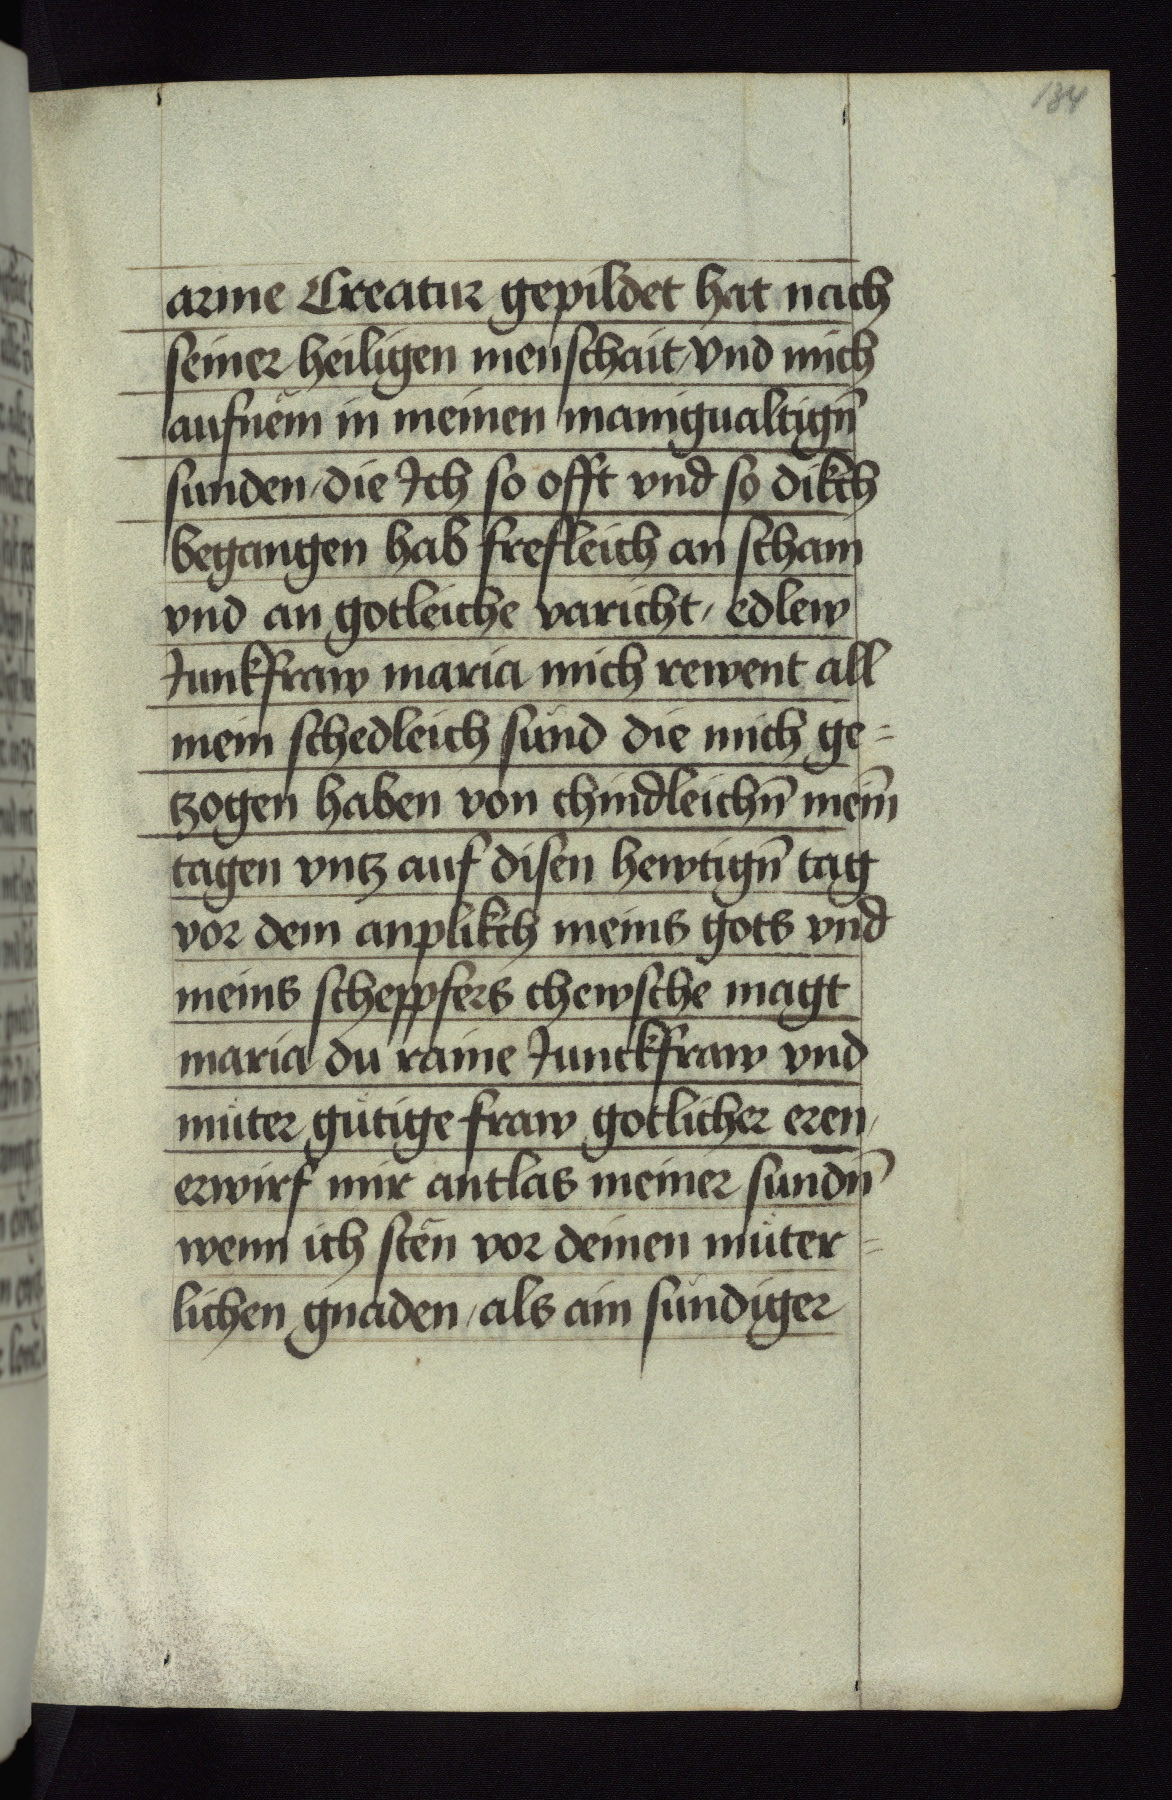 134
arme Creatur gepildet hat nach
seiner heiligen menschait / vnd mich
aufnëm in meinen manigualtign̄
sunden / die Ich so offt vnd so dikch
begangen hab frefleich an scham
vnd an gotleiche varicht / edlew
Junkfraw maria mich rewent all
mein schedleich sünd die mich ge=
tzogen haben von chindleichn̄ mein̄
tagen vntz auf disen hewtign̄ tag
vor dem anplikch meins gots vnd
meins scheppfers chewsche magt
maria du raine Junckfraw vnd
müter gütige fraw gotlicher eren /
erwirf mir antlas meiner sundn̄
wenn ich stën vor deinen müter=
lichen gnaden / als ain sündiger